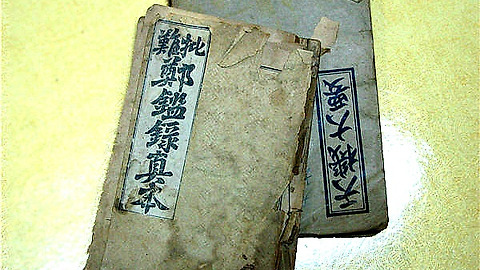 批難
鄭鑑錄真本
天機大要